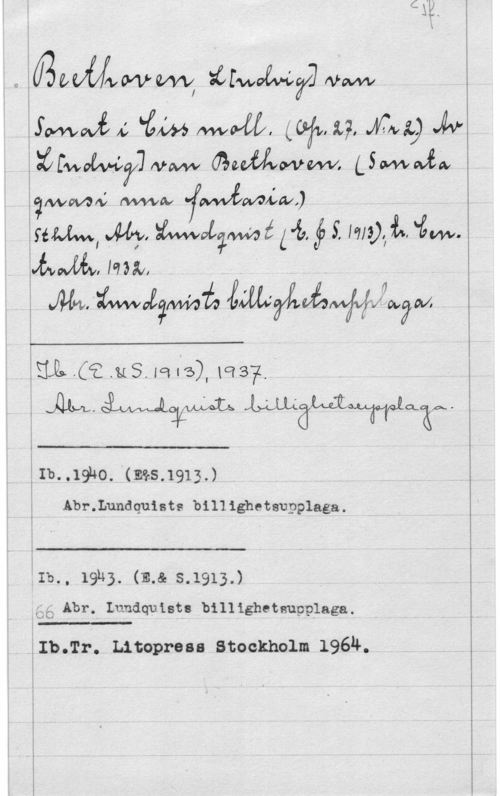 1f.
Beethoven, L[udvig] van
Sonat i Ciss moll. (Op. 27. N:r 2.) Av
L[udvig] van Beethoven. (Sonata
quasi una fantasia.)
Sthlm, Abr. Lundquist (E. & S. 1913), tr. Cen-
traltr. 1932.
Abr. Lundquists billighetsupplaga.
Ib. (E. & S. 1913), 1937.
Abr. Lundquists billighetsupplaga.
Ib.,1940. (E&S.1913.)
Abr.Lundquists billighetsupplaga.
Ib., 1943. (E.& S.1913.)
66 Abr. Lundquists billighetsupplaga.
Ib.Tr. Litopress Stockholm 1964.